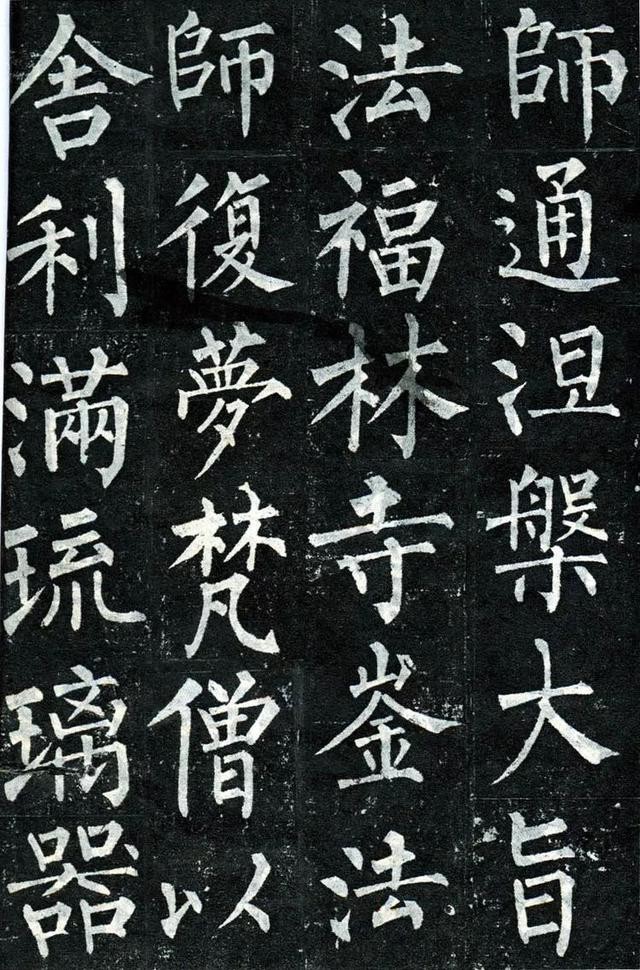 師通涅槃大旨
法福林寺崟法
師復夢梵僧以
舍利滿琉璃器